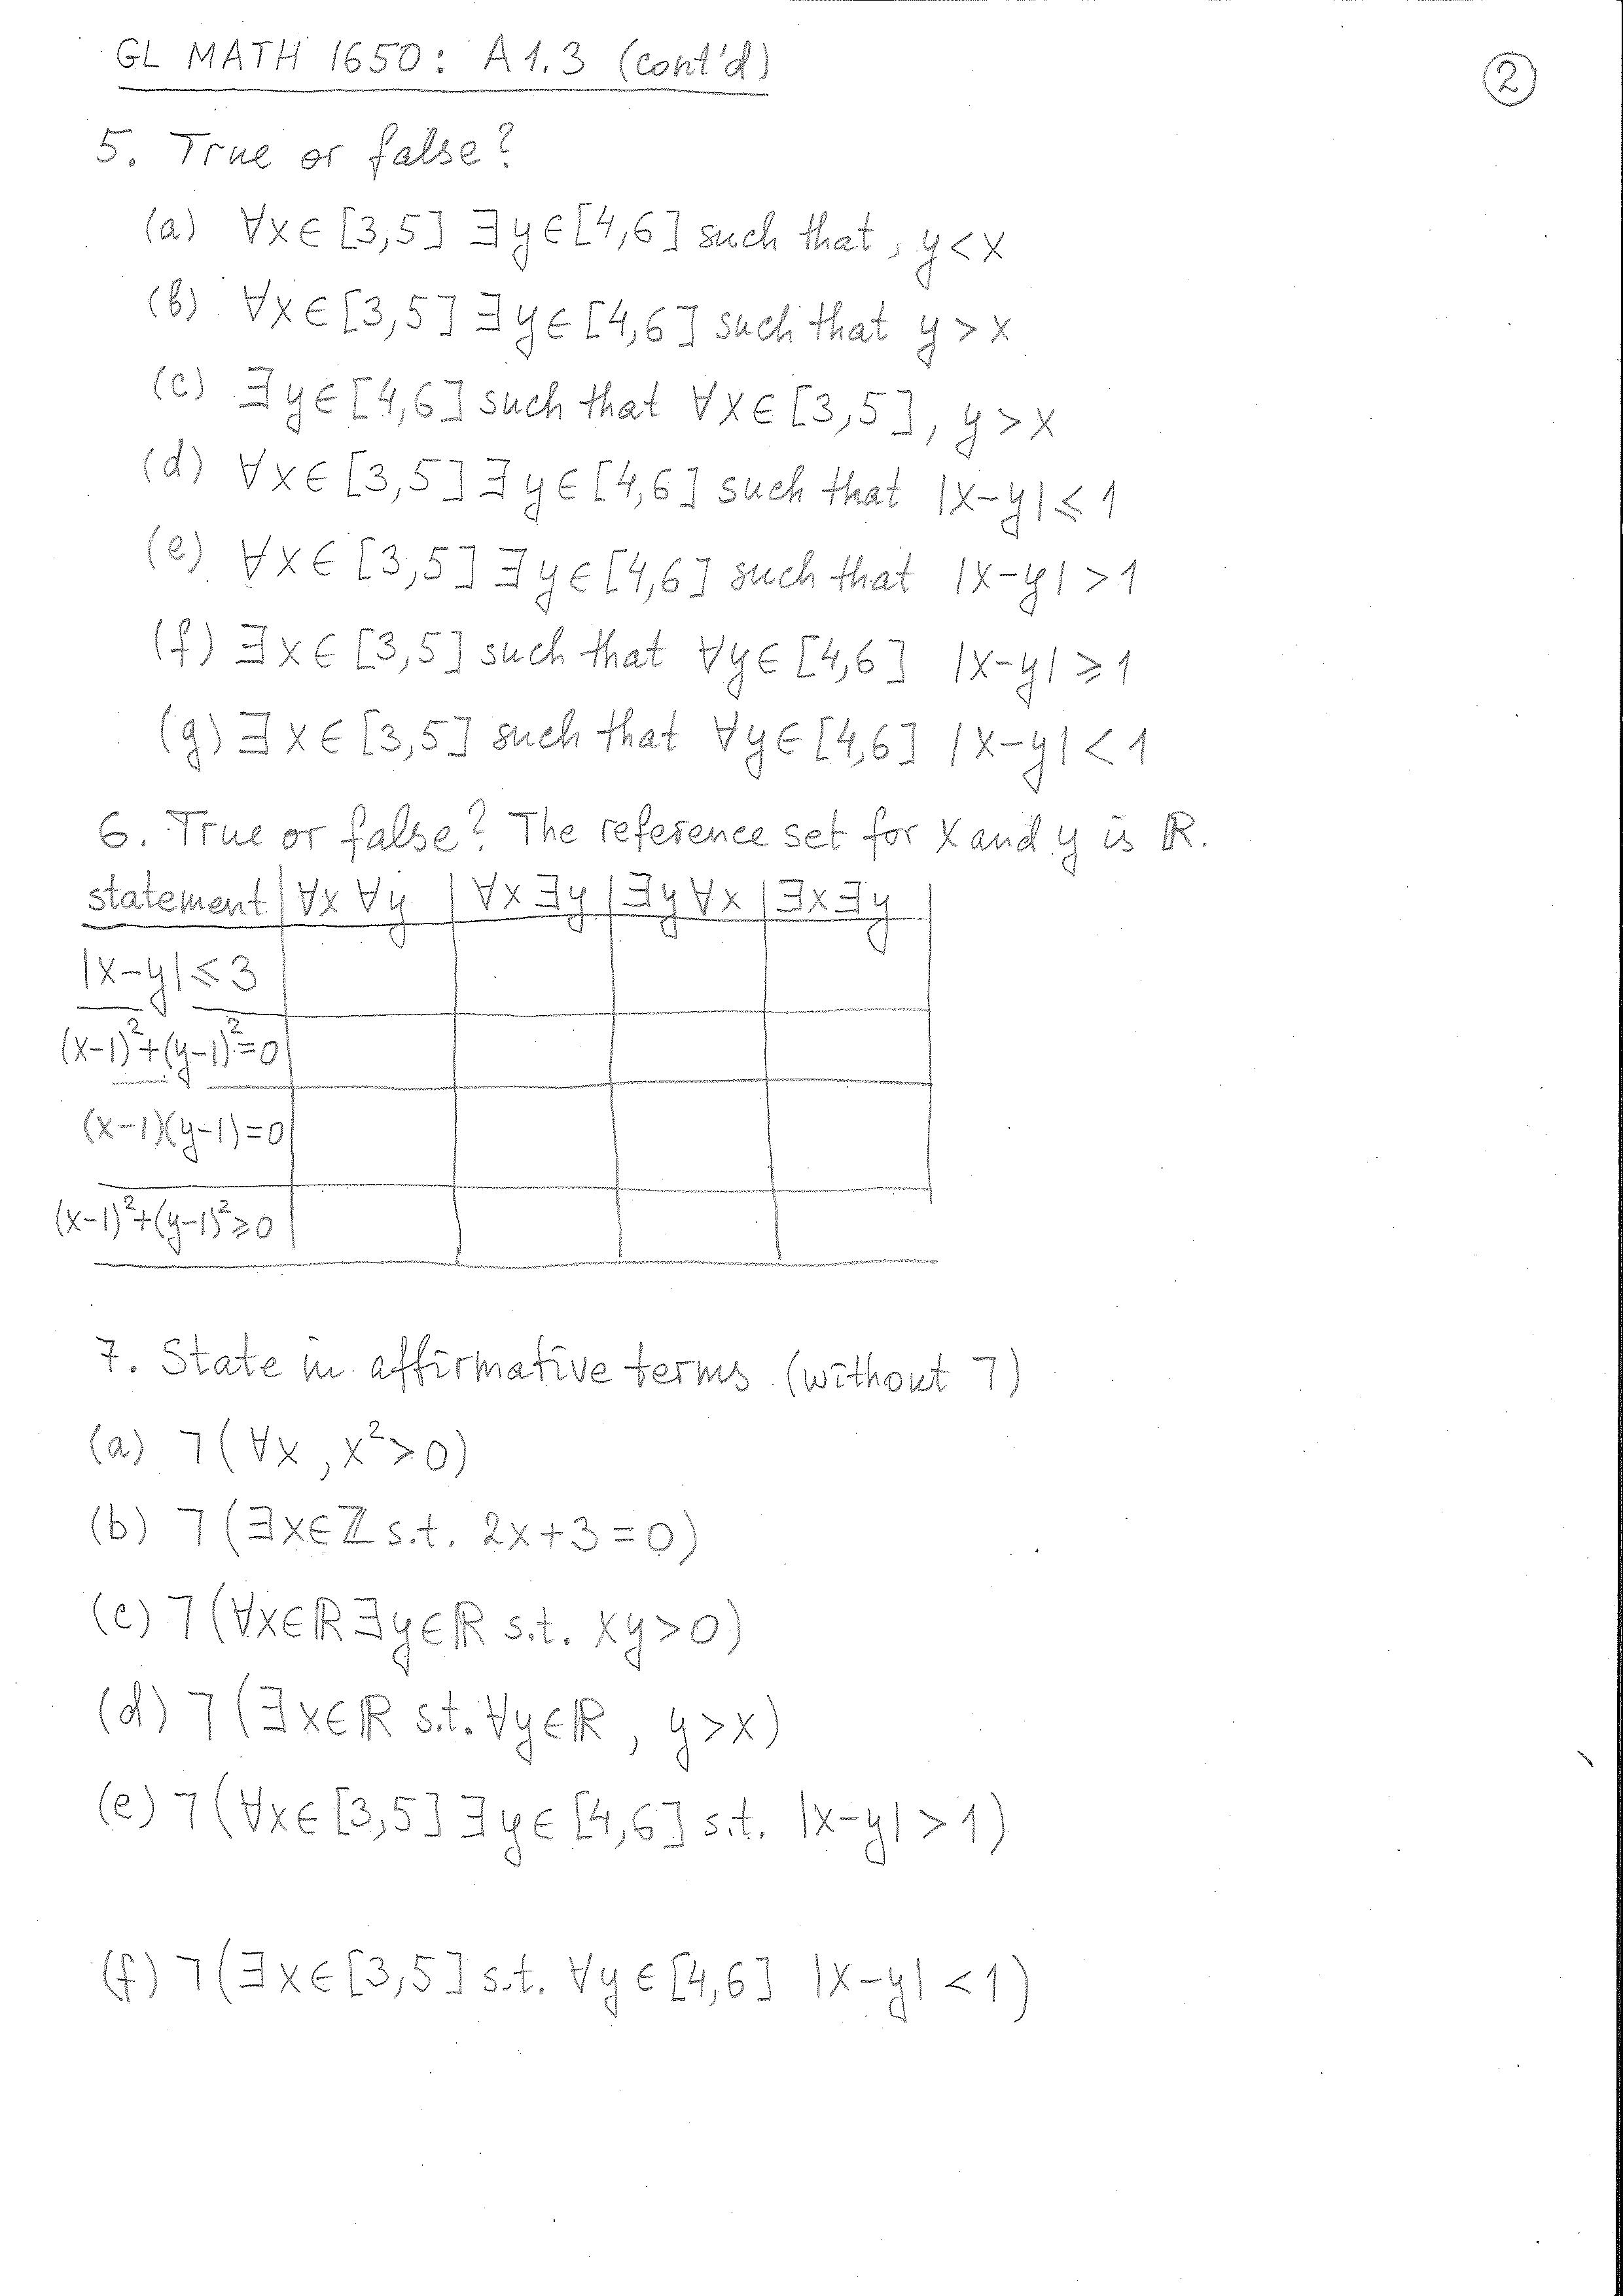 GL MATH 1650: A1.3 (cont'd)
2
5. True or false?
(a) ∀x∈[3,5] ∃y∈[4,6] such that, y<x
(b) ∀x∈[3,5] ∃y∈[4,6] such that y>x
(c) ∃y∈[4,6] such that ∀x∈[3,5], y>x
(d) ∀x∈[3,5] ∃y∈[4,6] such that |x-y|⩽1
(e) ∀x∈[3,5] ∃y∈[4,6] such that |x-y|>1
(f) ∃x∈[3,5] such that ∀y∈[4,6] |x-y|⩾1
(g) ∃x∈[3,5] such that ∀y∈[4,6] |x-y|<1
6. True or false? The reference set for x and y is ℝ.
statement ∀x ∀y ∀x ∃y ∃y ∀x ∃x ∃y
|x-y|⩽3
(x-1)²+(y-1)²=0
(x-1)(y-1)=0
(x-1)²+(y-1)²⩾0
7. State in affirmative terms (without ¬)
(a) ¬(∀x, x²>0)
(b) ¬(∃x∈ℤ s.t. 2x+3=0)
(c) ¬(∀x∈ℝ ∃y∈ℝ s.t. xy>0)
(d) ¬(∃x∈ℝ s.t. ∀y∈ℝ, y>x)
(e) ¬(∀x∈[3,5] ∃y∈[4,6] s.t. |x-y|>1)
(f) ¬(∃x∈[3,5] s.t. ∀y∈[4,6] |x-y|<1)